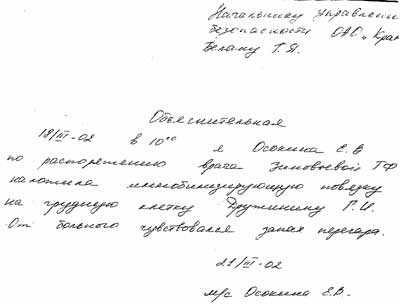 Начальнику управлени
безопасности ОАО „Крас
Белану Г.Я.
Объяснительная
18/III-02 в 10°° я Осокина Е.В
по распоряжению врача Зиновьевой ТФ
наложила иммобилизирующую повязку
на грудную клетку Дружинину Г.И.
От больного чувствовался запах перегара.
21/III-02
м/с Осокина Е.В.